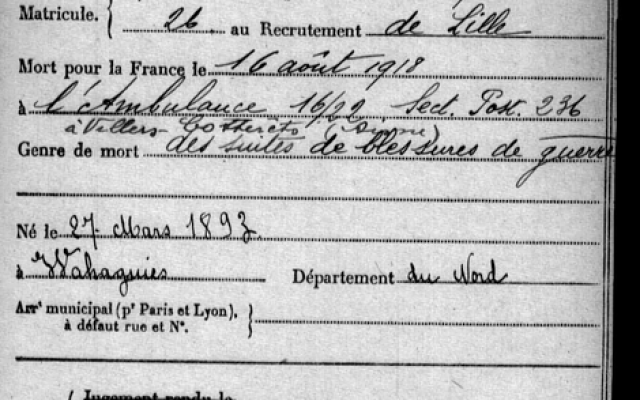 Matricule. { 26 au Recrutement de Lille
Mort pour la France le 16 août 1918
à l'Ambulance 16/22 Sect. Post. 236
à Villers-Cotterêts (Aisne)
Genre de mort des suites de blessures de guerre
Né le 27 Mars 1893
à Wahagnies Département du Nord
Arrt municipal (pr Paris et Lyon), }
à défaut rue et N°.
Jugement rendu le